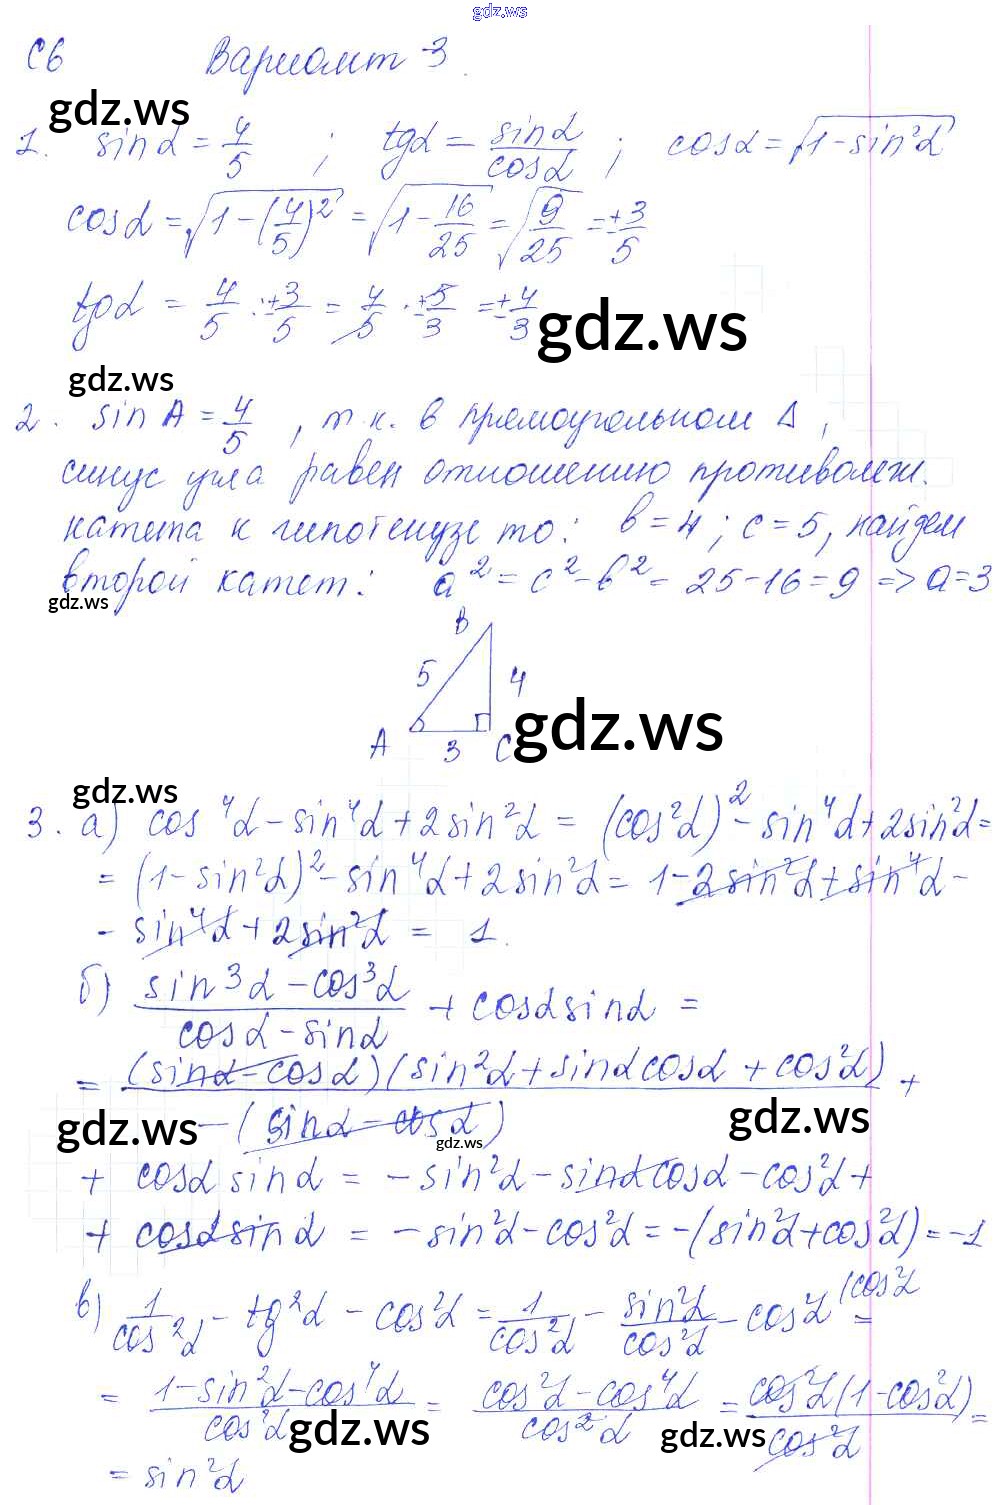 gdz.ws
С6 Вариант 3.
gdz.ws
1. sinα = 4/5 ; tgα = sinα/cosα ; cosα = √(1-sin²α)
cosα = √(1-(4/5)²) = √(1-16/25) = √(9/25) = ±3/5
tgα = 4/5 : ±3/5 = 4/5 · ±5/3 = ±4/3
gdz.ws
gdz.ws
2. sin A = 4/5 , т.к. в прямоугольном Δ,
синус угла равен отношению противолеж.
катета к гипотенузе то: в = 4 ; с = 5, найдем
второй катет: a² = c² - в² = 25 - 16 = 9 => a = 3
gdz.ws
B
5 4
gdz.ws
A 3 C
gdz.ws
3. а) cos⁴α - sin⁴α + 2sin²α = (cos²α)² - sin⁴α + 2sin²α =
= (1-sin²α)² - sin⁴α + 2sin²α = 1 - 2sin²α + sin⁴α -
- sin⁴α + 2sin²α = 1.
б) (sin³α - cos³α)/(cosα - sinα) + cosα sinα =
= (sinα - cosα)(sin²α + sinα cosα + cos²α)/-(sinα - cosα) +
gdz.ws
gdz.ws
gdz.ws
+ cosα sinα = - sin²α - sinα cosα - cos²α +
+ cosα sinα = - sin²α - cos²α = -(sin²α + cos²α) = -1
в) 1/cos²α - tg²α - cos²α = 1/cos²α - sin²α/cos²α - cos²α (cos²α =
= (1 - sin²α - cos⁴α)/cos²α = (cos²α - cos⁴α)/cos²α = cos²α(1 - cos²α)/cos²α =
gdz.ws
gdz.ws
= sin²α